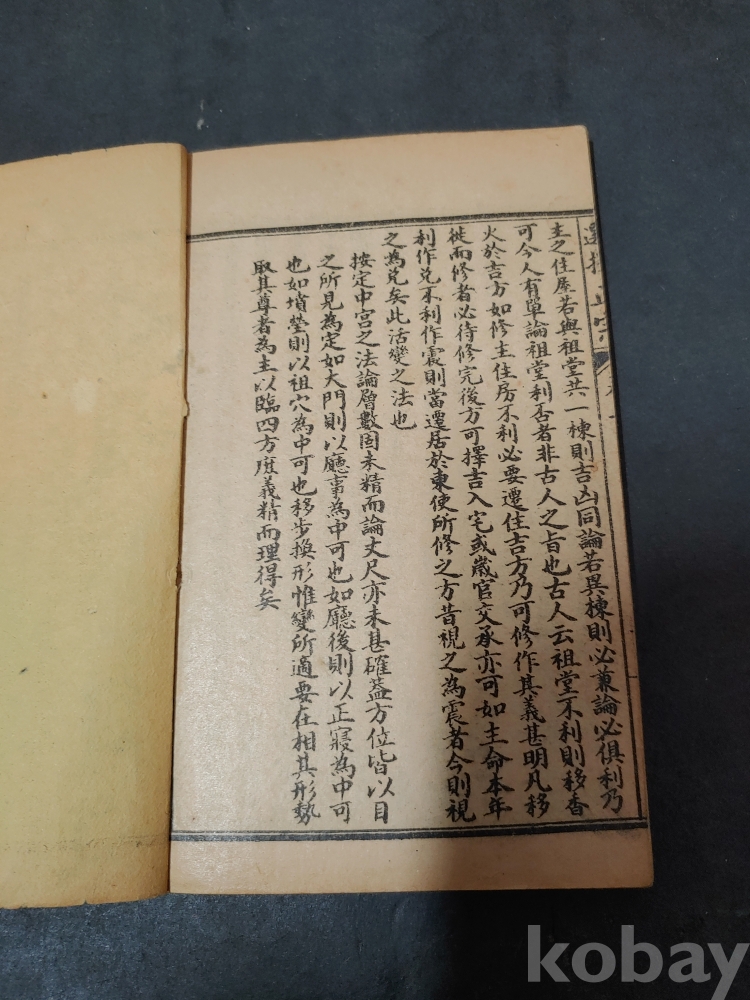 選擇正宗
主之住屋若與祖堂共一棟則吉凶同論若異棟則必兼論必俱利乃
可今人有單論祖堂利否者非古人之旨也古人云祖堂不利則移香
火於吉方如修主住房不利必要遷住吉方乃可修作其義甚明凡移
徙而修者必待修完後方可擇吉入宅或歲官交承亦可如主命本年
利作兌不利作震則當遷居於東使所修之方昔視之為震者今則視
之為兌矣此活變之法也
按定中宮之法論層數固未精而論丈尺亦未甚確蓋方位皆以目
之所見為定如大門則以廳事為中可也如廳後則以正寢為中可
也如墳塋則以祖穴為中可也移步換形惟變所適要在相其形勢
取其尊者為主以臨四方庶義精而理得矣
kobay